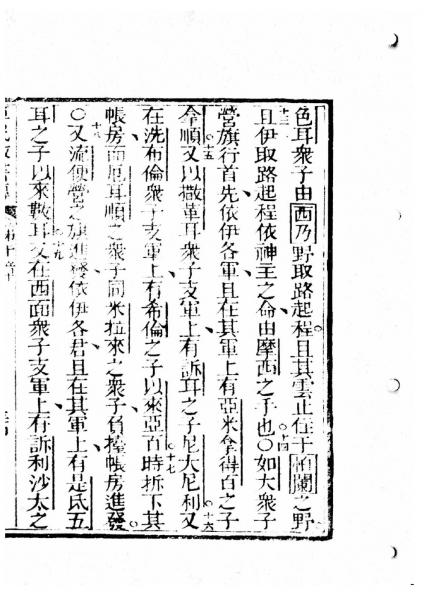 色耳衆子由西乃野取路起程且其雲止在于怕闌之野
十三且伊取路起程依神主之命由摩西之手也〇十四如大衆子
營旗行首先依伊各軍且在其軍上有亞米拿得百之子
拿順十五又以撒革耳衆子支軍上有訴耳之子尼大尼利十六又
在洗布倫衆子支軍上有希倫之子以來亞百十七時拆下其
帳房而厄耳順之衆子同米拉來之衆子負擡帳房進發
〇十八又流便營之旗進發依伊各軍且在其軍上有是氐五
耳之子以來數耳十九又在西面衆子支軍上有訴利沙太之